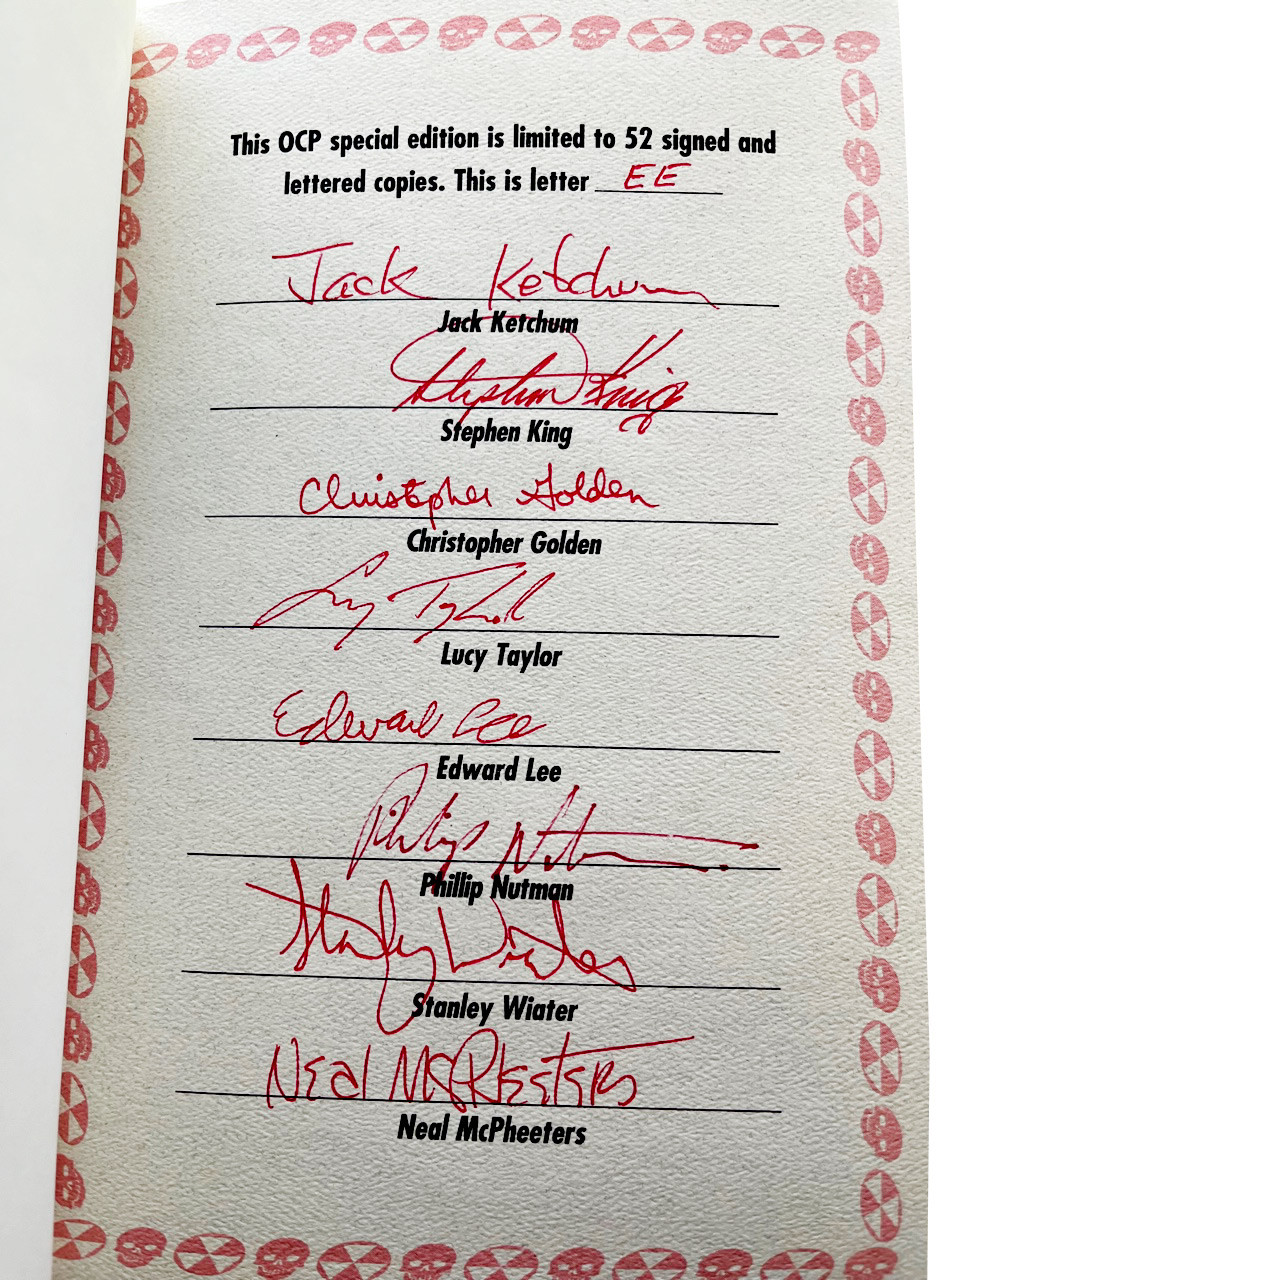 This OCP special edition is limited to 52 signed and
lettered copies. This is letter EE
Jack Ketchum
Jack Ketchum
Stephen King
Stephen King
Christopher Golden
Christopher Golden
Lucy Taylor
Lucy Taylor
Edward Lee
Edward Lee
Philip Nutman
Phillip Nutman
Stanley Wiater
Stanley Wiater
Neal McPheeters
Neal McPheeters